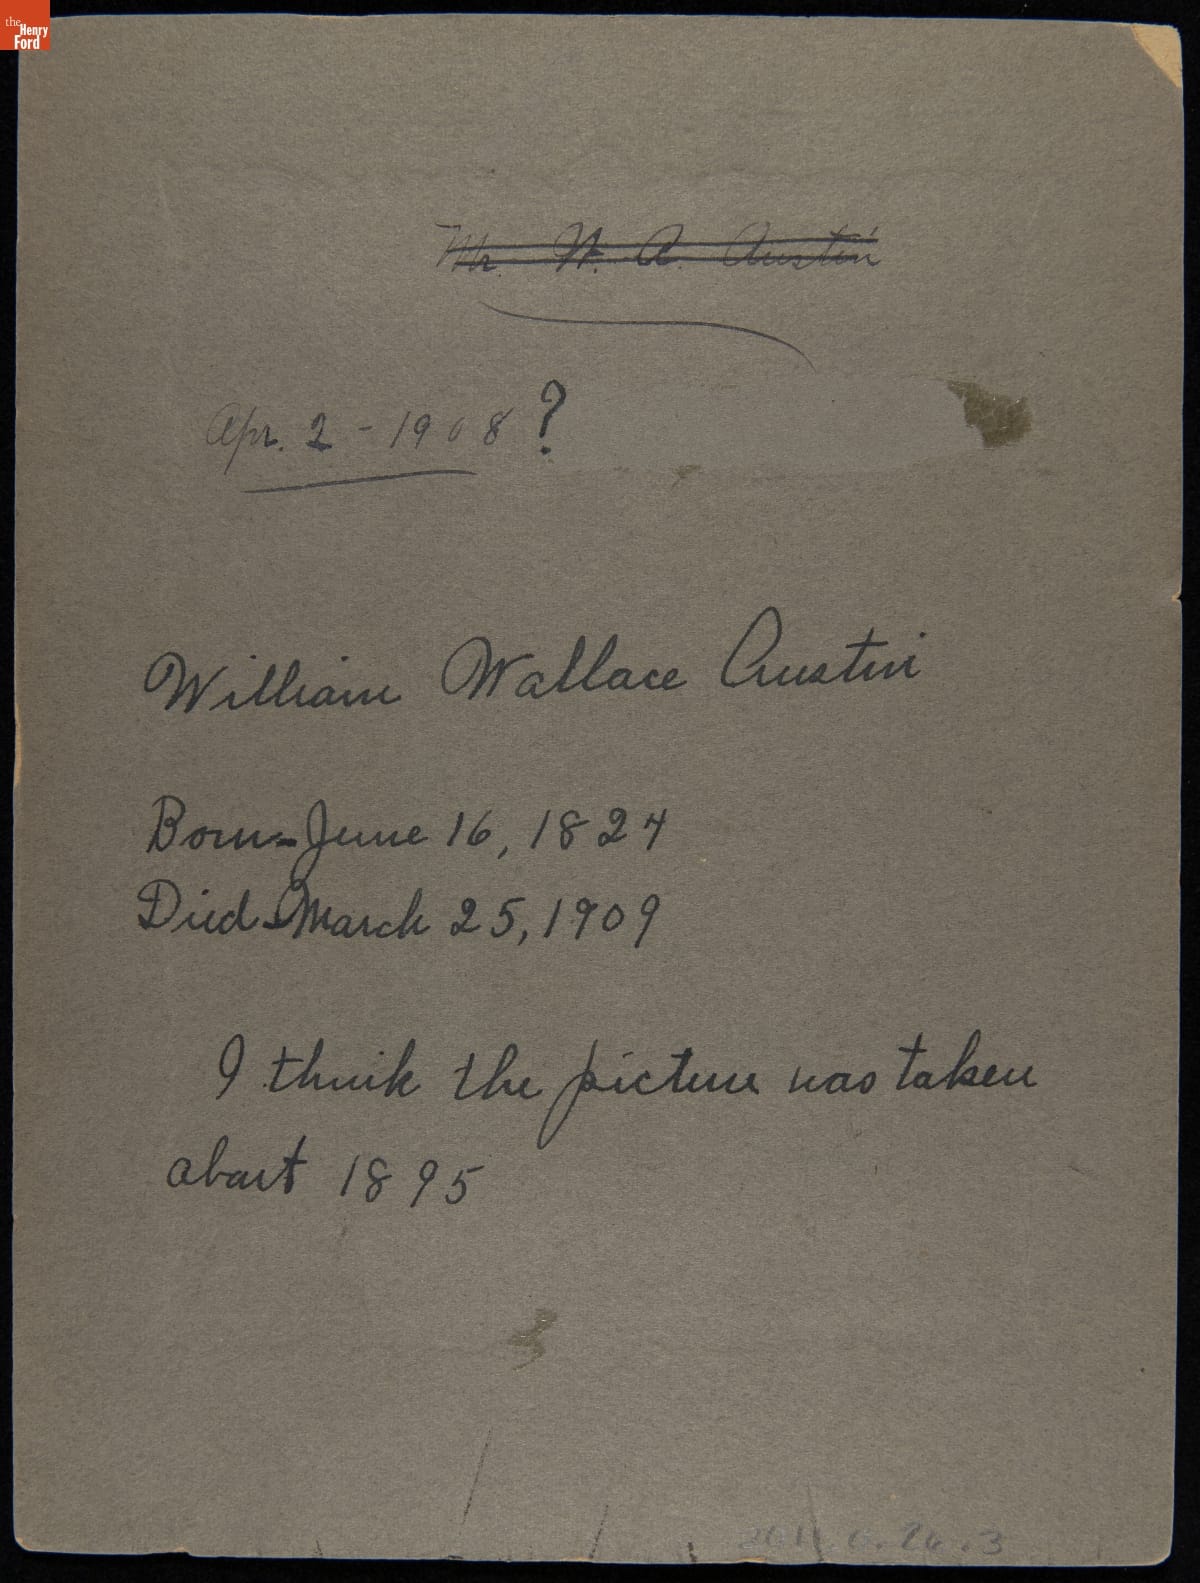 the
Henry
Ford
Mr. W. A. Austin
Apr. 2 - 1908 ?
William Wallace Austin
Born - June 16, 1824
Died - March 25, 1909
I think the picture was taken
about 1895